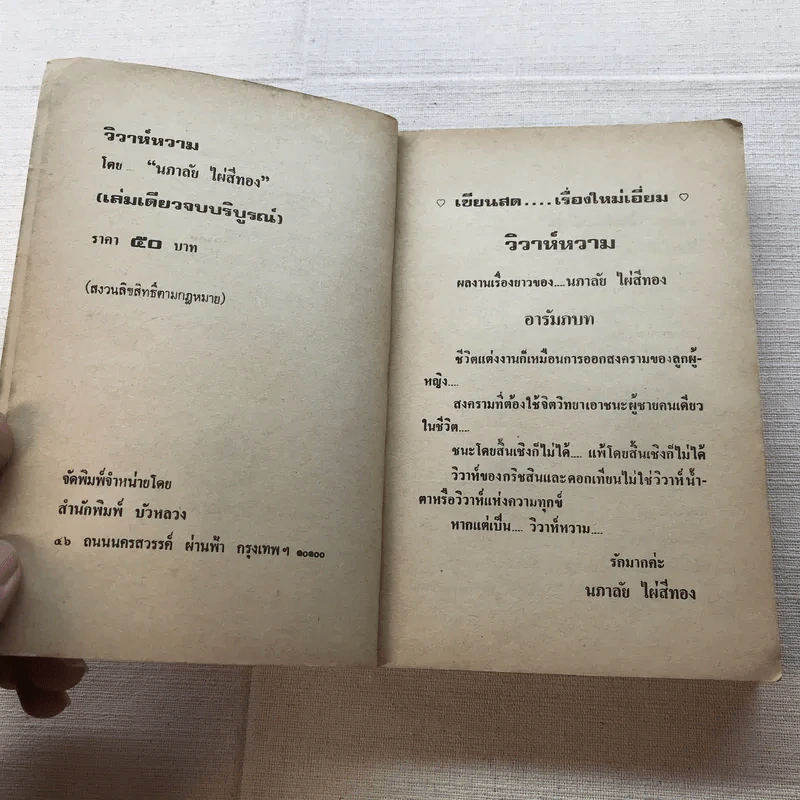 วิวาห์หวาม
โดย... “นภาลัย ไผ่สีทอง”
(เล่มเดียวจบบริบูรณ์)
ราคา ๕๐ บาท
(สงวนลิขสิทธิ์ตามกฎหมาย)
จัดพิมพ์จำหน่ายโดย
สำนักพิมพ์ บัวหลวง
๔๖ ถนนนครสวรรค์ ผ่านฟ้า กรุงเทพฯ ๑๐๑๐๐
♡ เขียนสด....เรื่องใหม่เอี่ยม ♡
วิวาห์หวาม
ผลงานเรื่องยาวของ....นภาลัย ไผ่สีทอง
อารัมภบท
ชีวิตแต่งงานก็เหมือนการออกสงครามของลูกผู้-
หญิง....
สงครามที่ต้องใช้จิตวิทยาเอาชนะผู้ชายคนเดียว
ในชีวิต....
ชนะโดยสิ้นเชิงก็ไม่ได้.... แพ้โดยสิ้นเชิงก็ไม่ได้
วิวาห์ของกริชสินและดอกเทียนไม่ใช่วิวาห์น้ำ-
ตาหรือวิวาห์แห่งความทุกข์
หากแต่เป็น.... วิวาห์หวาม....
รักมากค่ะ
นภาลัย ไผ่สีทอง